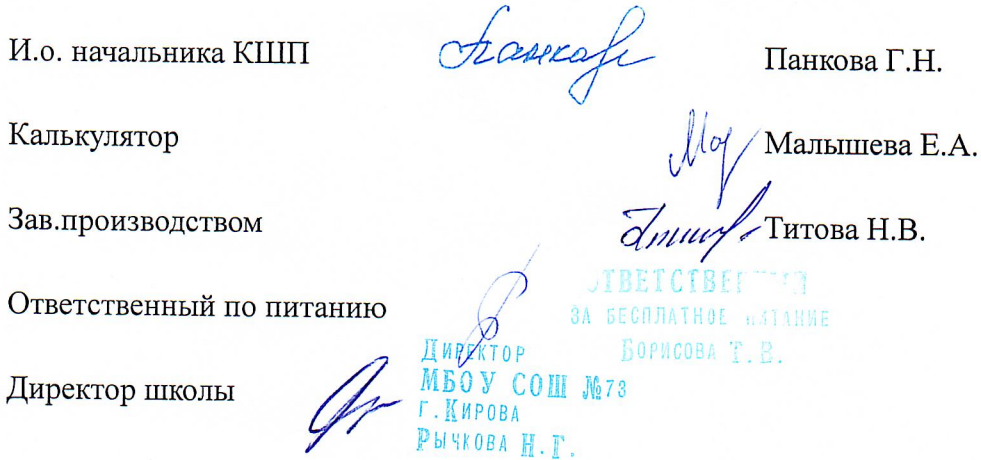 И.о. начальника КШП Панкова Г.Н.
Калькулятор Малышева Е.А.
Зав.производством Титова Н.В.
Ответственный по питанию
ЗА БЕСПЛАТНОЕ ПИТАНИЕ
БОРИСОВА Т.В.
Директор школы
ДИРЕКТОР
МБОУ СОШ №73
Г.КИРОВА
РЫЧКОВА Н.Г.